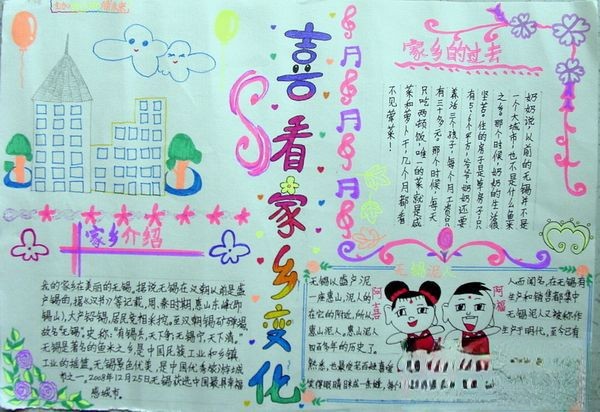 喜看家乡变化
家乡的过去
奶奶说，以前的无锡并不是
一个大城市，也不是什么鱼米
之乡。那个时候，奶奶的生活很
坚苦。住的房子是草房子，只
有5、6个平方，爷爷奶奶还要
养活三个孩子，每个月工资只
有三十多元。那个时候，每天
只吃两顿饭，唯一的菜就是咸
菜和萝卜干，几个月都看
不见荤菜！！
家乡介绍
我的家乡在美丽的无锡，据说无锡在汉朝以前是盛
产锡曲，据《汉书》等记载，周、秦时期，惠山东峰(即
锡山)，大产铅锡，居民竞相来挖。至汉朝锡矿殚竭，
故名“无锡”。史称：“有锡兵，天下争；无锡宁，天下清。”
无锡是著名的鱼米之乡，是中国民族工业和乡镇
工业的摇篮。无锡景色优美，是中国优秀旅游城
市之一。2008年12月25日无锡获选中国最具幸福
感城市。
无锡泥人
无锡以盛产泥
一座惠山，泥人的
在它的附近，所以
惠山泥人。惠山泥人
四百多年的历史了。
阿喜
阿福
人而闻名，在无锡有
生产和销售都集中
无锡泥人又被称作
生产于明代，至今已有